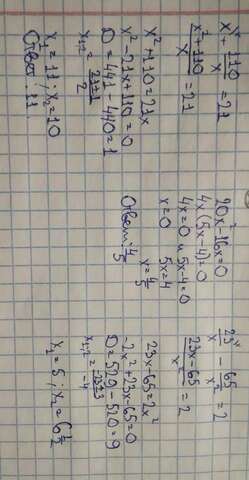 x + 110/x = 21
x²+110/x = 21
x²+110=21x
x²-21x+110=0
D=441-440=1
x₁,₂ = 21±1/2
x₁=11; x₂=10
Ответ: 11
20x²-16x=0
4x(5x-4)=0
4x=0 и 5x-4=0
x=0 5x=4
x=4/5
Ответ: 4/5
23/x - 65/x² = 2
23x-65/x² = 2
23x-65=2x²
-2x²+23x-65=0
D=529-520=9
x₁,₂ = -23±3/-4
x₁=5; x₂=6 1/2